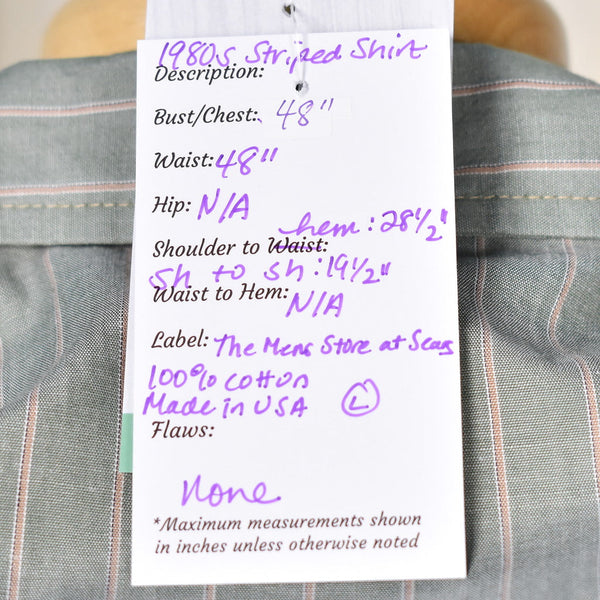 1980s Striped Shirt
Description:
Bust/Chest: 48"
Waist: 48"
Hip: N/A
hem: 28 1/2"
Shoulder to Waist:
Sh to sh: 19 1/2"
Waist to Hem: N/A
Label: The Mens Store at Sears
100% cotton
Made in USA L
Flaws:
None
*Maximum measurements shown
in inches unless otherwise noted